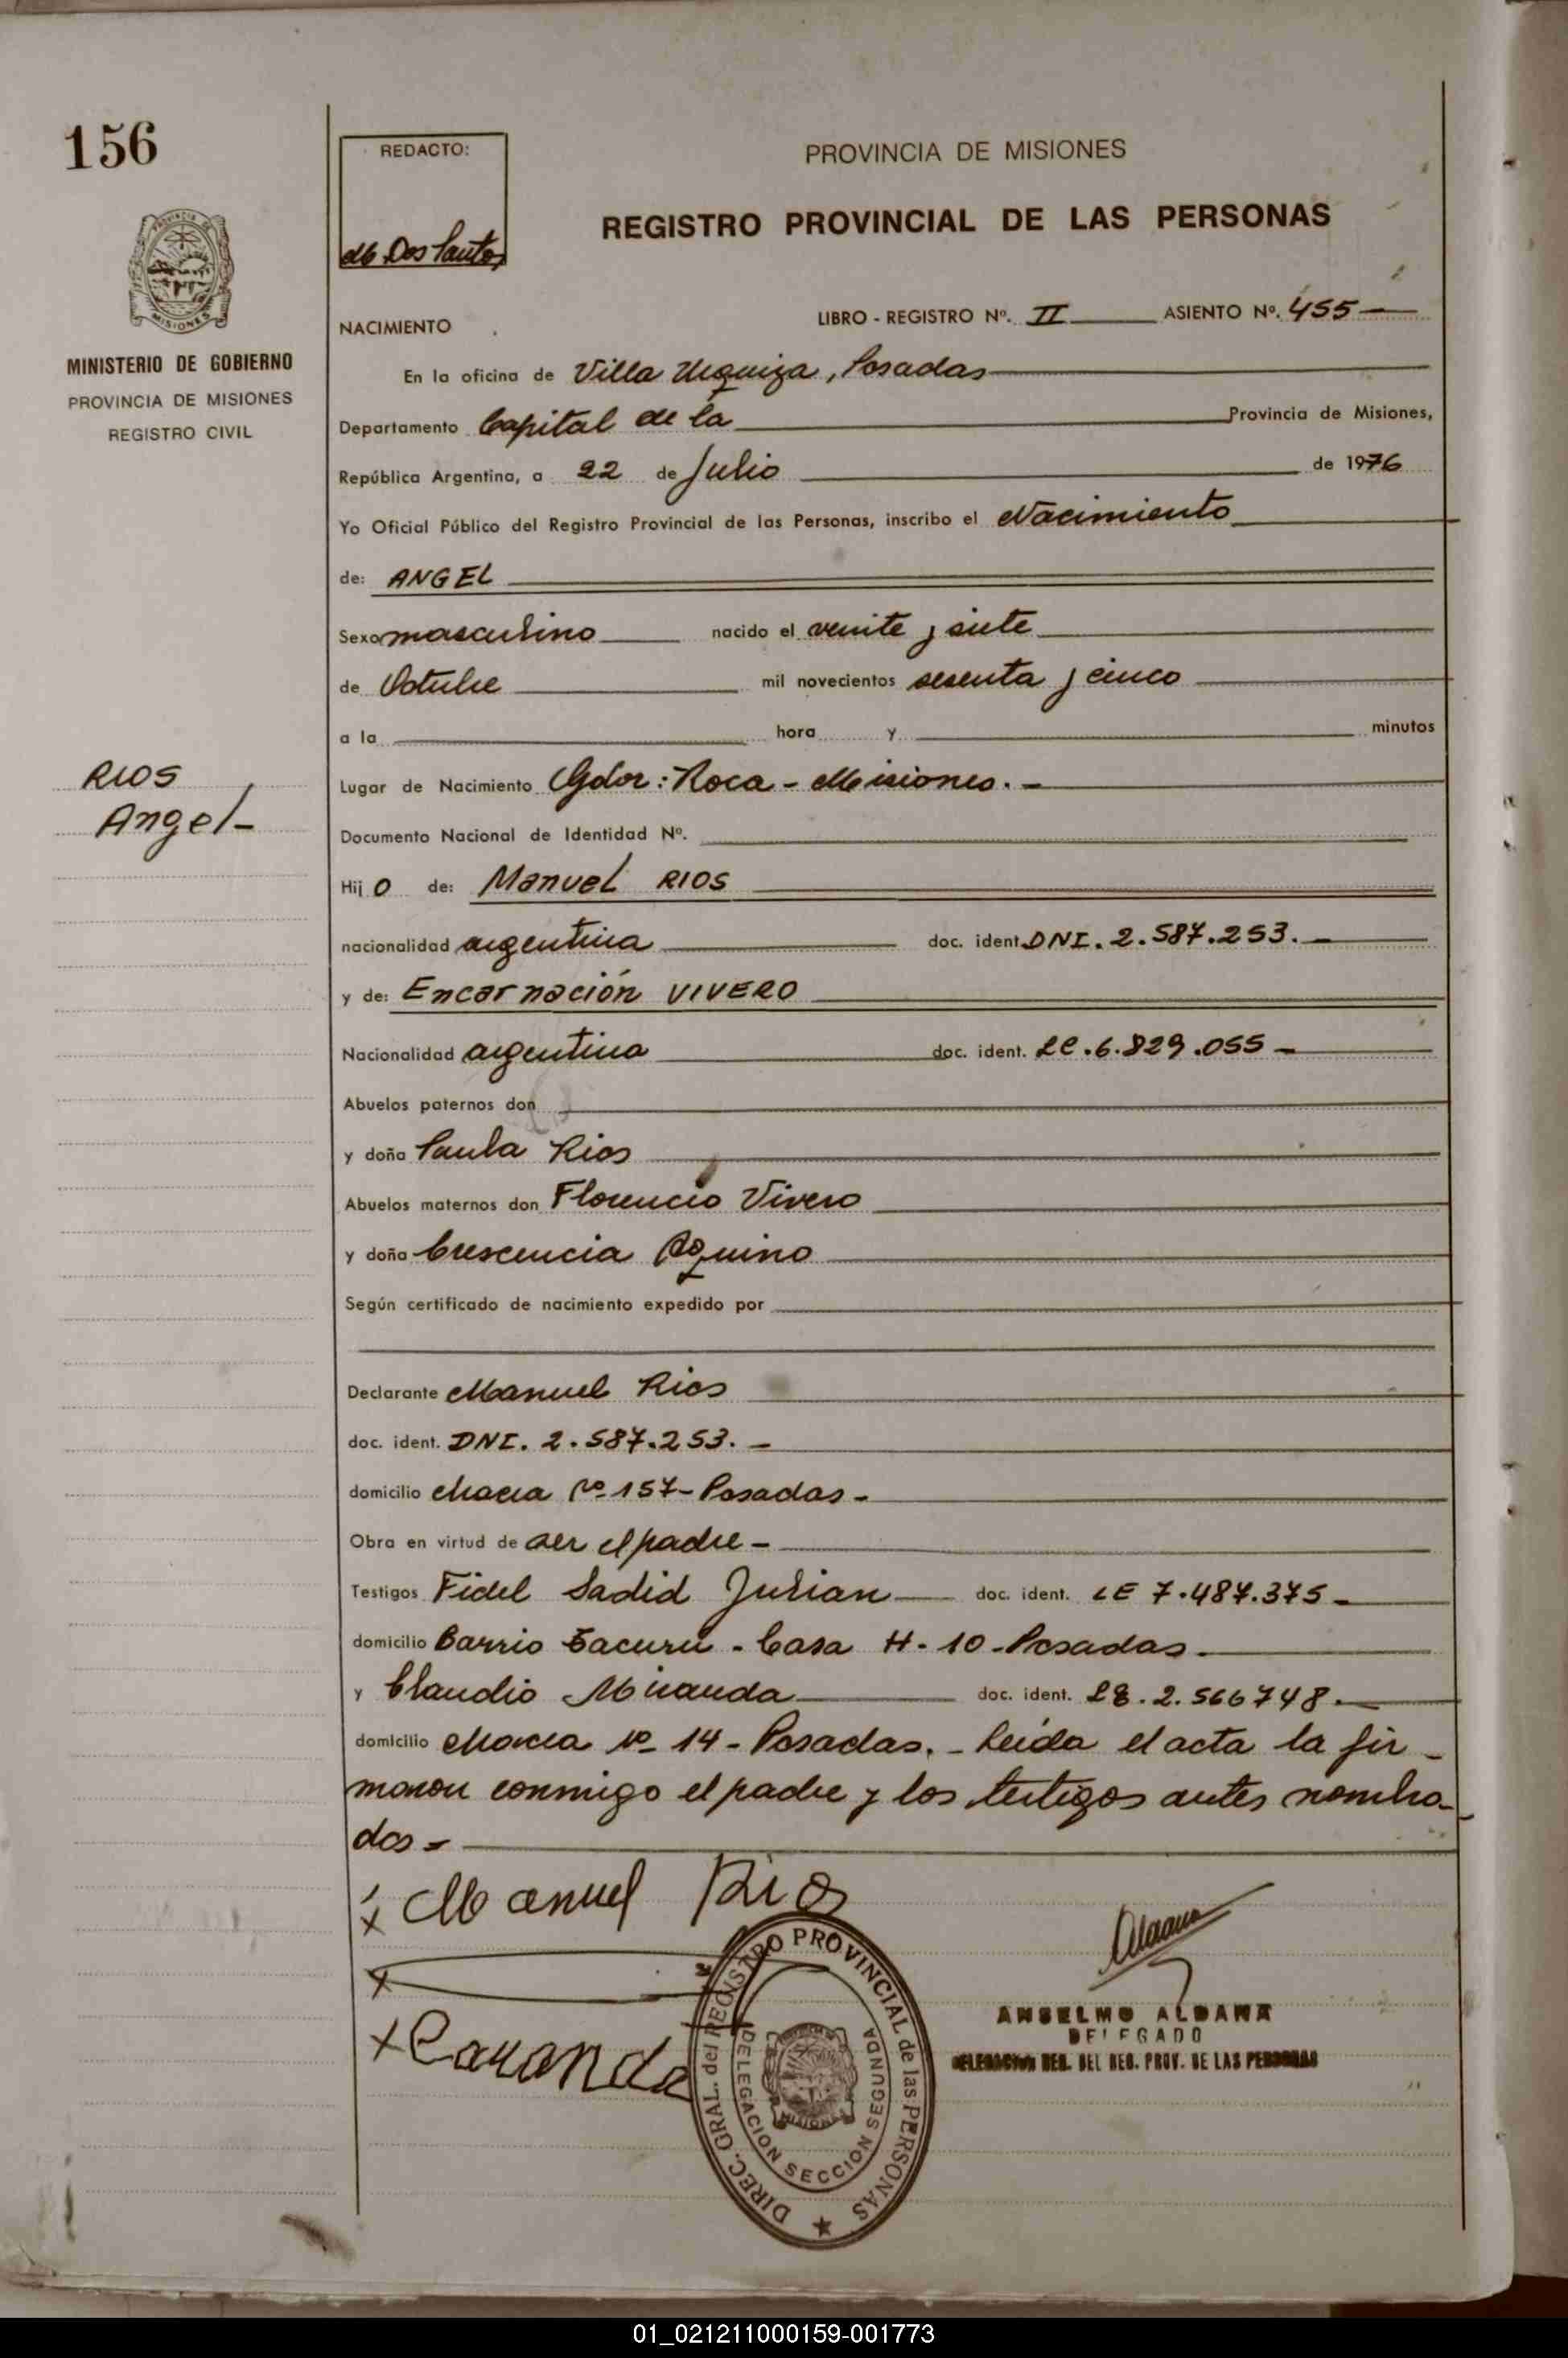 156
REDACTO:
Dos Santos
PROVINCIA DE MISIONES
REGISTRO PROVINCIAL DE LAS PERSONAS
MISIONES
MINISTERIO DE GOBIERNO
PROVINCIA DE MISIONES
REGISTRO CIVIL
NACIMIENTO
LIBRO - REGISTRO Nº. II ASIENTO Nº. 455-
En la oficina de Villa Urquiza, Posadas
Departamento Capital de la Provincia de Misiones,
República Argentina, a 22 de Julio de 1976
Yo Oficial Público del Registro Provincial de las Personas, inscribo el Nacimiento
de: ANGEL
Sexo masculino nacido el veinte y siete
de Octubre mil novecientos sesenta y cinco
a la hora y minutos
RIOS
Angel-
Lugar de Nacimiento Gdor: Roca - Misiones.-
Documento Nacional de Identidad Nº.
Hij o de: Manuel RIOS
nacionalidad argentina doc. ident. DNI. 2.587.253.-
y de: Encarnación VIVERO
Nacionalidad argentina doc. ident. LC.6.829.055-
Abuelos paternos don
y doña Paula Rios
Abuelos maternos don Florencio Vivero
y doña Crescencia Aquino
Según certificado de nacimiento expedido por
Declarante Manuel Rios
doc. ident. DNI. 2.587.253.-
domicilio chacra Nº 157-Posadas-
Obra en virtud de ser el padre-
Testigos Fidel Sadid Julian doc. ident. LE 7.487.375-
domicilio Barrio Tacurú - Casa H-10-Posadas-
y Claudio Miranda doc. ident. 2.566748.-
domicilio chacra Nº 14-Posadas.- Leída el acta la fir-
maron conmigo el padre y los testigos antes nombra-
dos-
x Manuel Rios
x
x
ANSELMO ALDANA
DELEGADO
DIREC. GRAL. del REGISTRO PROVINCIAL de las PERSONAS
DELEGACION SECCION SEGUNDA
MISIONES
01_021211000159-001773